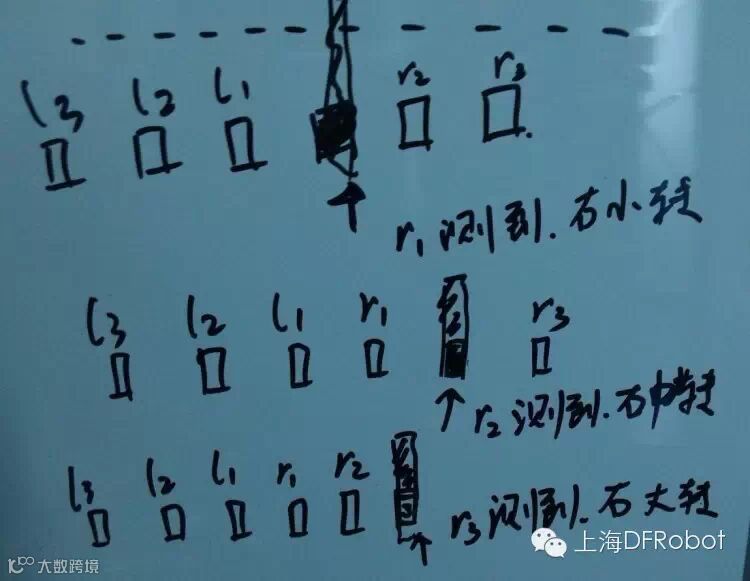 l3 l2 l1 r2 r3
r1测到.右小转
l3 l2 l1 r1 r3
r2测到.右中转
l3 l2 l1 r1 r2
r3测到.右大转
上海DFRobot
大数跨境